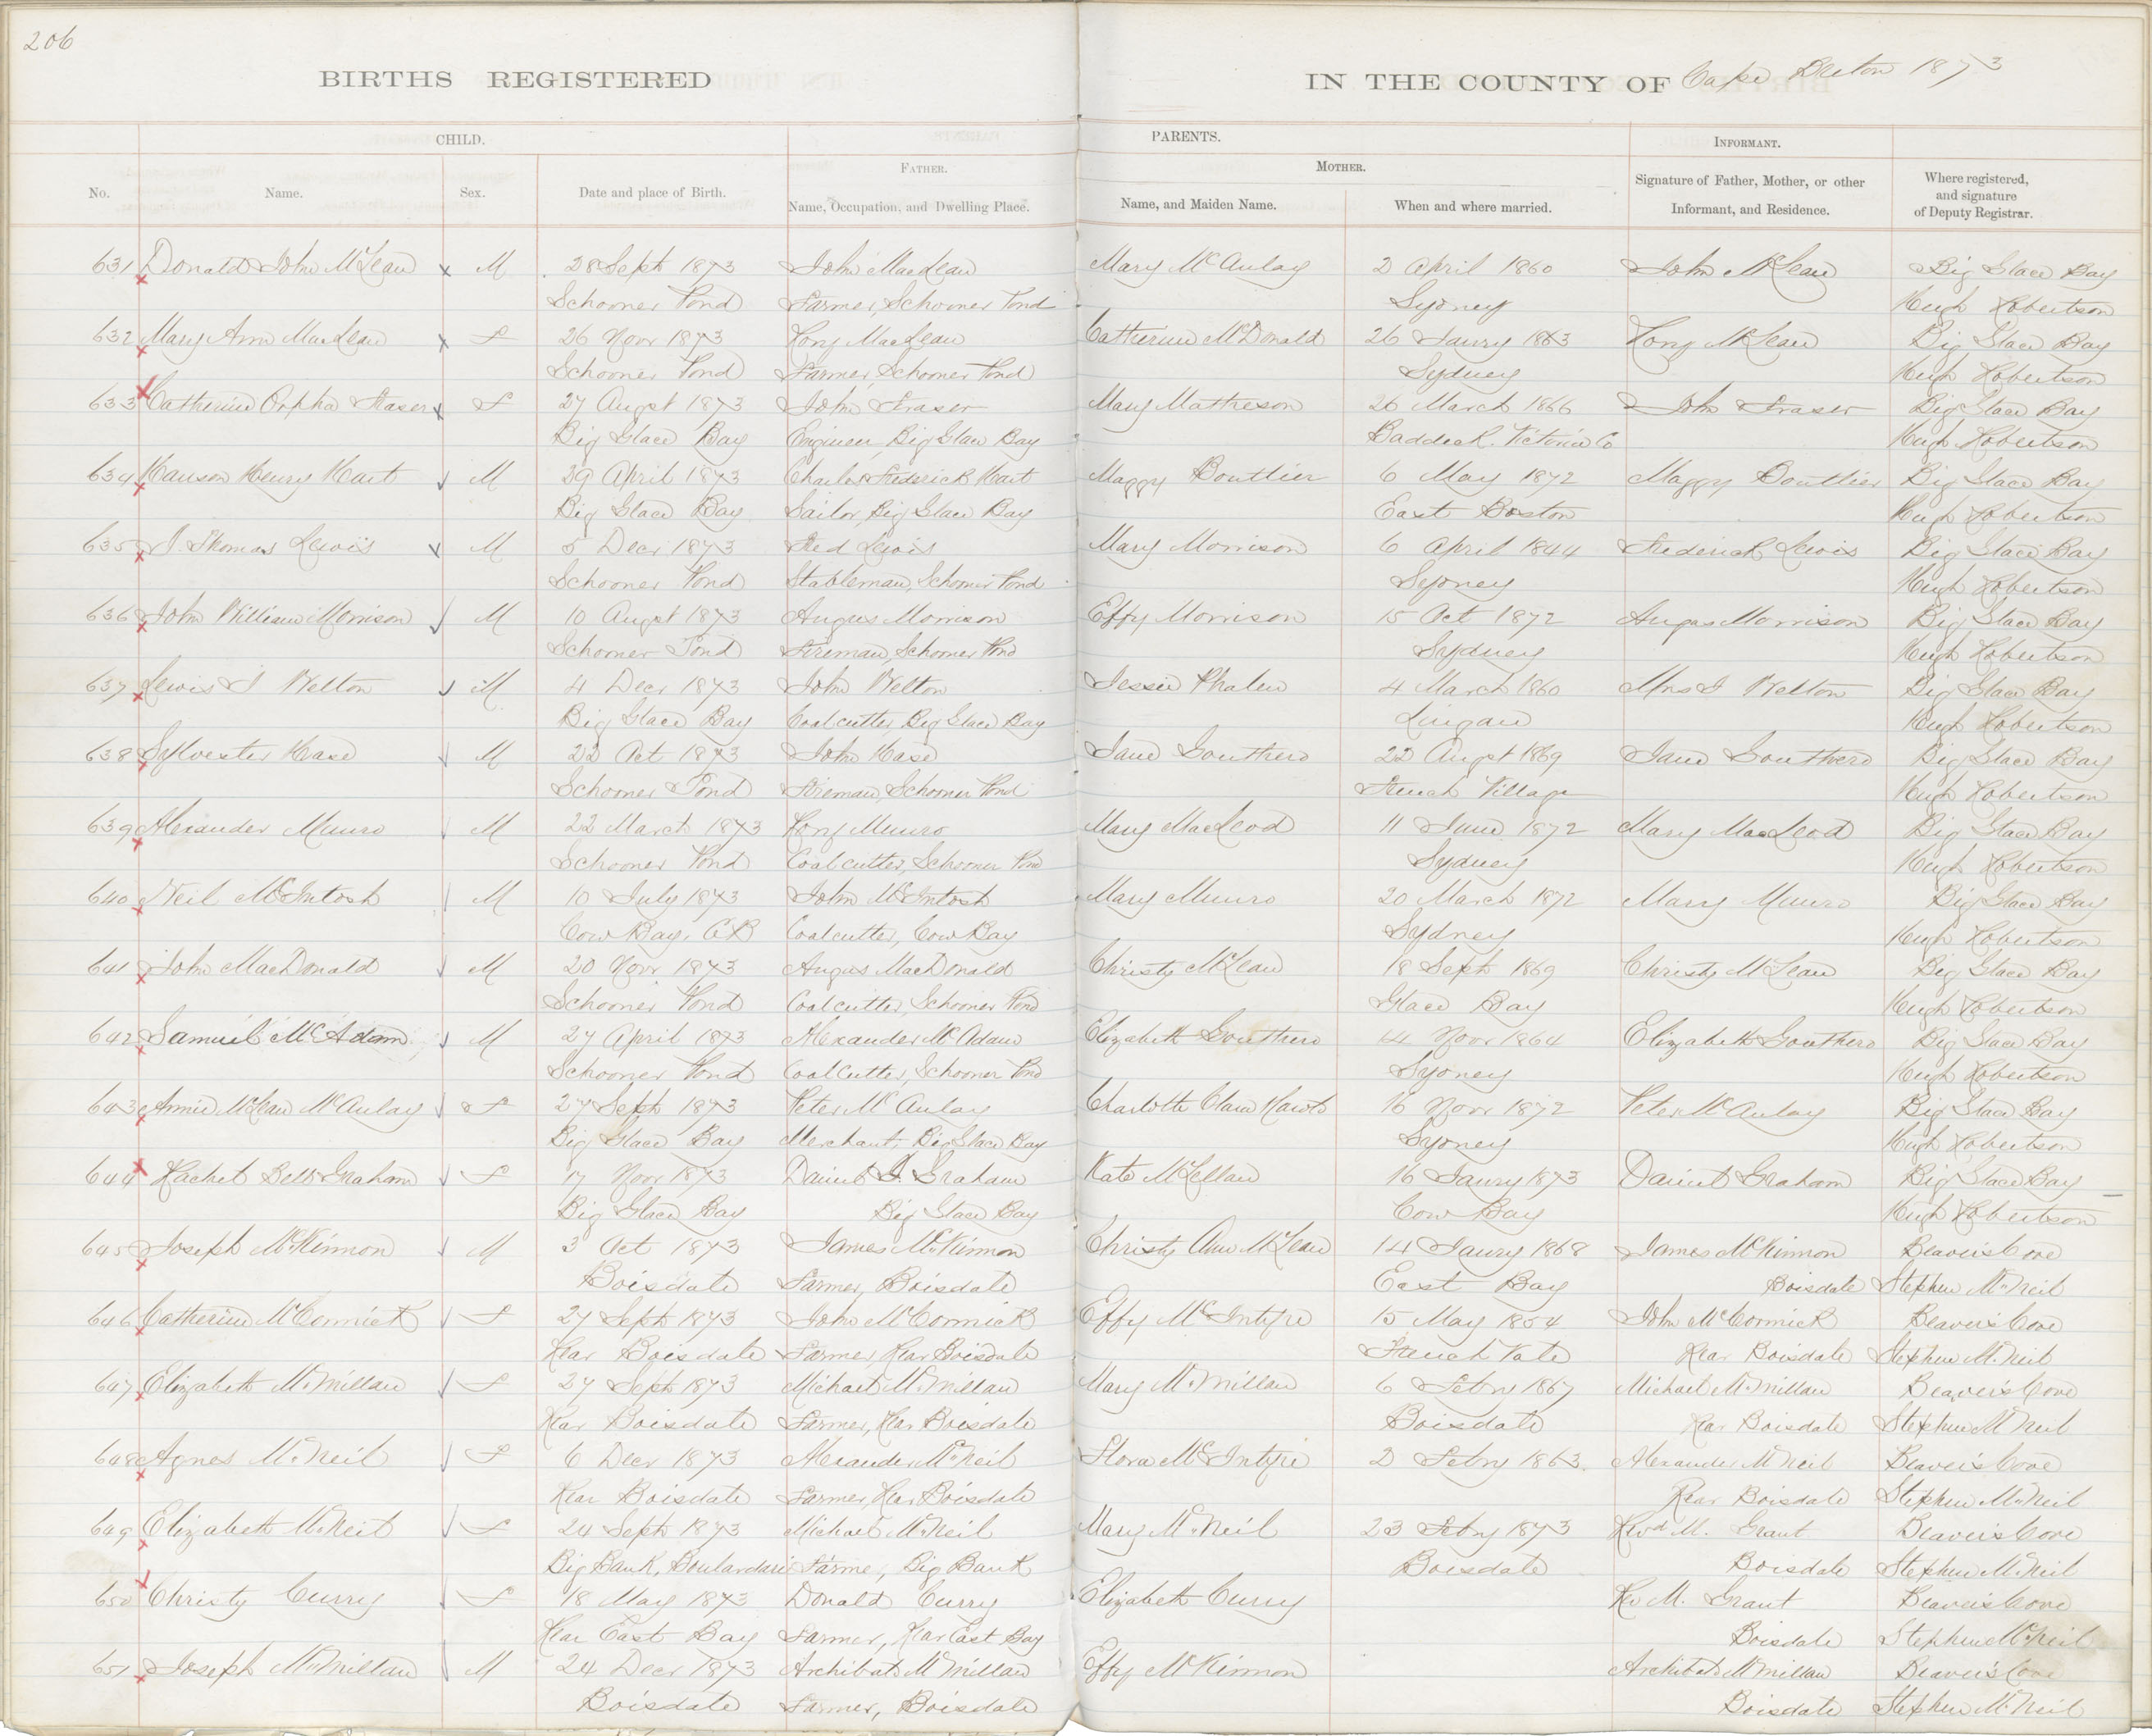 206
BIRTHS REGISTERED IN THE COUNTY OF Cape Breton 1873
CHILD. PARENTS. INFORMANT.
FATHER. MOTHER.
No. Name. Sex. Date and place of Birth. Name, Occupation, and Dwelling Place. Name, and Maiden Name. When and where married. Signature of Father, Mother, or other Informant, and Residence. Where registered, and signature of Deputy Registrar.
631 Donald John McLean M 28 Sept 1873 John MacLean Mary McAulay 2 April 1860 John McLean Big Glace Bay
Schooner Pond Farmer, Schooner Pond Sydney Hugh Robertson
632 Mary Ann MacLean F 26 Novr 1873 MacLean Catherine McDonald 26 Janry 1863 McLean Big Glace Bay
Schooner Pond Farmer, Schooner Pond Sydney Hugh Robertson
633 Catherine Orpha Fraser F 27 Augst 1873 John Fraser Mary Matheson 26 March 1866 John Fraser Big Glace Bay
Big Glace Bay Engineer, Big Glace Bay Baddeck. Victoria Co Hugh Robertson
634 Hanson Henry Hart M 29 April 1873 Charles Frederick Hart Maggy Boutlier 6 May 1872 Maggy Boutlier Big Glace Bay
Big Glace Bay Sailor, Big Glace Bay East Boston Hugh Robertson
635 J. Thomas Lewis M 5 Decr 1873 Fred Lewis Mary Morrison 6 April 1844 Frederick Lewis Big Glace Bay
Schooner Pond Stableman, Schooner Pond Sydney Hugh Robertson
636 John William Morrison M 10 Augst 1873 Angus Morrison Effy Morrison 15 Oct 1872 Angus Morrison Big Glace Bay
Schooner Pond Fireman, Schooner Pond Sydney Hugh Robertson
637 Lewis J Welton M 4 Decr 1873 John Welton Jessie Phalen 4 March 1860 Mrs J Welton Big Glace Bay
Big Glace Bay Coalcutter, Big Glace Bay Lingan Hugh Robertson
638 Sylvester Hase M 22 Oct 1873 John Hase Jane Gouthero 22 Augst 1869 Jane Gouthero Big Glace Bay
Schooner Pond Fireman, Schooner Pond French Village Hugh Robertson
639 Alexander Munro M 22 March 1873 Munro Mary MacLeod 11 June 1872 Mary MacLeod Big Glace Bay
Schooner Pond Coalcutter, Schooner Pond Sydney Hugh Robertson
640 Neil McIntosh M 10 July 1873 John McIntosh Mary Munro 20 March 1872 Mary Munro Big Glace Bay
Cow Bay, CB Coalcutter, Cow Bay Sydney Hugh Robertson
641 John MacDonald M 20 Novr 1873 Angus MacDonald Christy McLean 18 Sept 1869 Christy McLean Big Glace Bay
Schooner Pond Coalcutter, Schooner Pond Glace Bay Hugh Robertson
642 Samuel McAdam M 27 April 1873 Alexander McAdam Elizabeth Gouthero 14 Novr 1864 Elizabeth Gouthero Big Glace Bay
Schooner Pond Coalcutter, Schooner Pond Sydney Hugh Robertson
643 Annie McLean McAulay F 27 Sept 1873 Peter McAulay Charlotte Clara 16 Novr 1872 Peter McAulay Big Glace Bay
Big Glace Bay Merchant, Big Glace Bay Sydney Hugh Robertson
644 Rachel Bell Graham F 17 Novr 1873 Daniel J. Graham Kate McLellan 16 Janry 1873 Daniel Graham Big Glace Bay
Big Glace Bay Big Glace Bay Cow Bay Hugh Robertson
645 Joseph McKinnon M 3 Oct 1873 James McKinnon Christy Ann McLean 14 Janry 1868 James McKinnon Beaver's Cove
Boisdale Farmer, Boisdale East Bay Boisdale Stephen McNeil
646 Catherine McCormick F 27 Sept 1873 John McCormick Effy McIntyre 15 May 1854 John McCormick Beaver's Cove
Rear Boisdale Farmer, Rear Boisdale French Vale Rear Boisdale Stephen McNeil
647 Elizabeth McMillan F 27 Sept 1873 Michael McMillan Mary McMillan 6 Febry 1867 Michael McMillan Beaver's Cove
Rear Boisdale Farmer, Rear Boisdale Boisdale Rear Boisdale Stephen McNeil
648 Agnes McNeil F 6 Decr 1873 Alexander McNeil Flora McIntyre 2 Febry 1863. Alexander McNeil Beaver's Cove
Rear Boisdale Farmer, Rear Boisdale Rear Boisdale Stephen McNeil
649 Elizabeth McNeil F 24 Sept 1873 Michael McNeil Mary McNeil 23 Febry 1873 Revd M. Grant Beaver's Cove
Big Bank, Boulardarie Farmer, Big Bank Boisdale Boisdale Stephen McNeil
650 Christy Curry F 18 May 1873 Donald Curry Elizabeth Curry Rev M. Grant Beaver's Cove
Rear East Bay Farmer, Rear East Bay Boisdale Stephen McNeil
651 Joseph McMillan M 24 Decr 1873 Archibald McMillan Effy McKinnon Archibald McMillan Beaver's Cove
Boisdale Farmer, Boisdale Boisdale Stephen McNeil